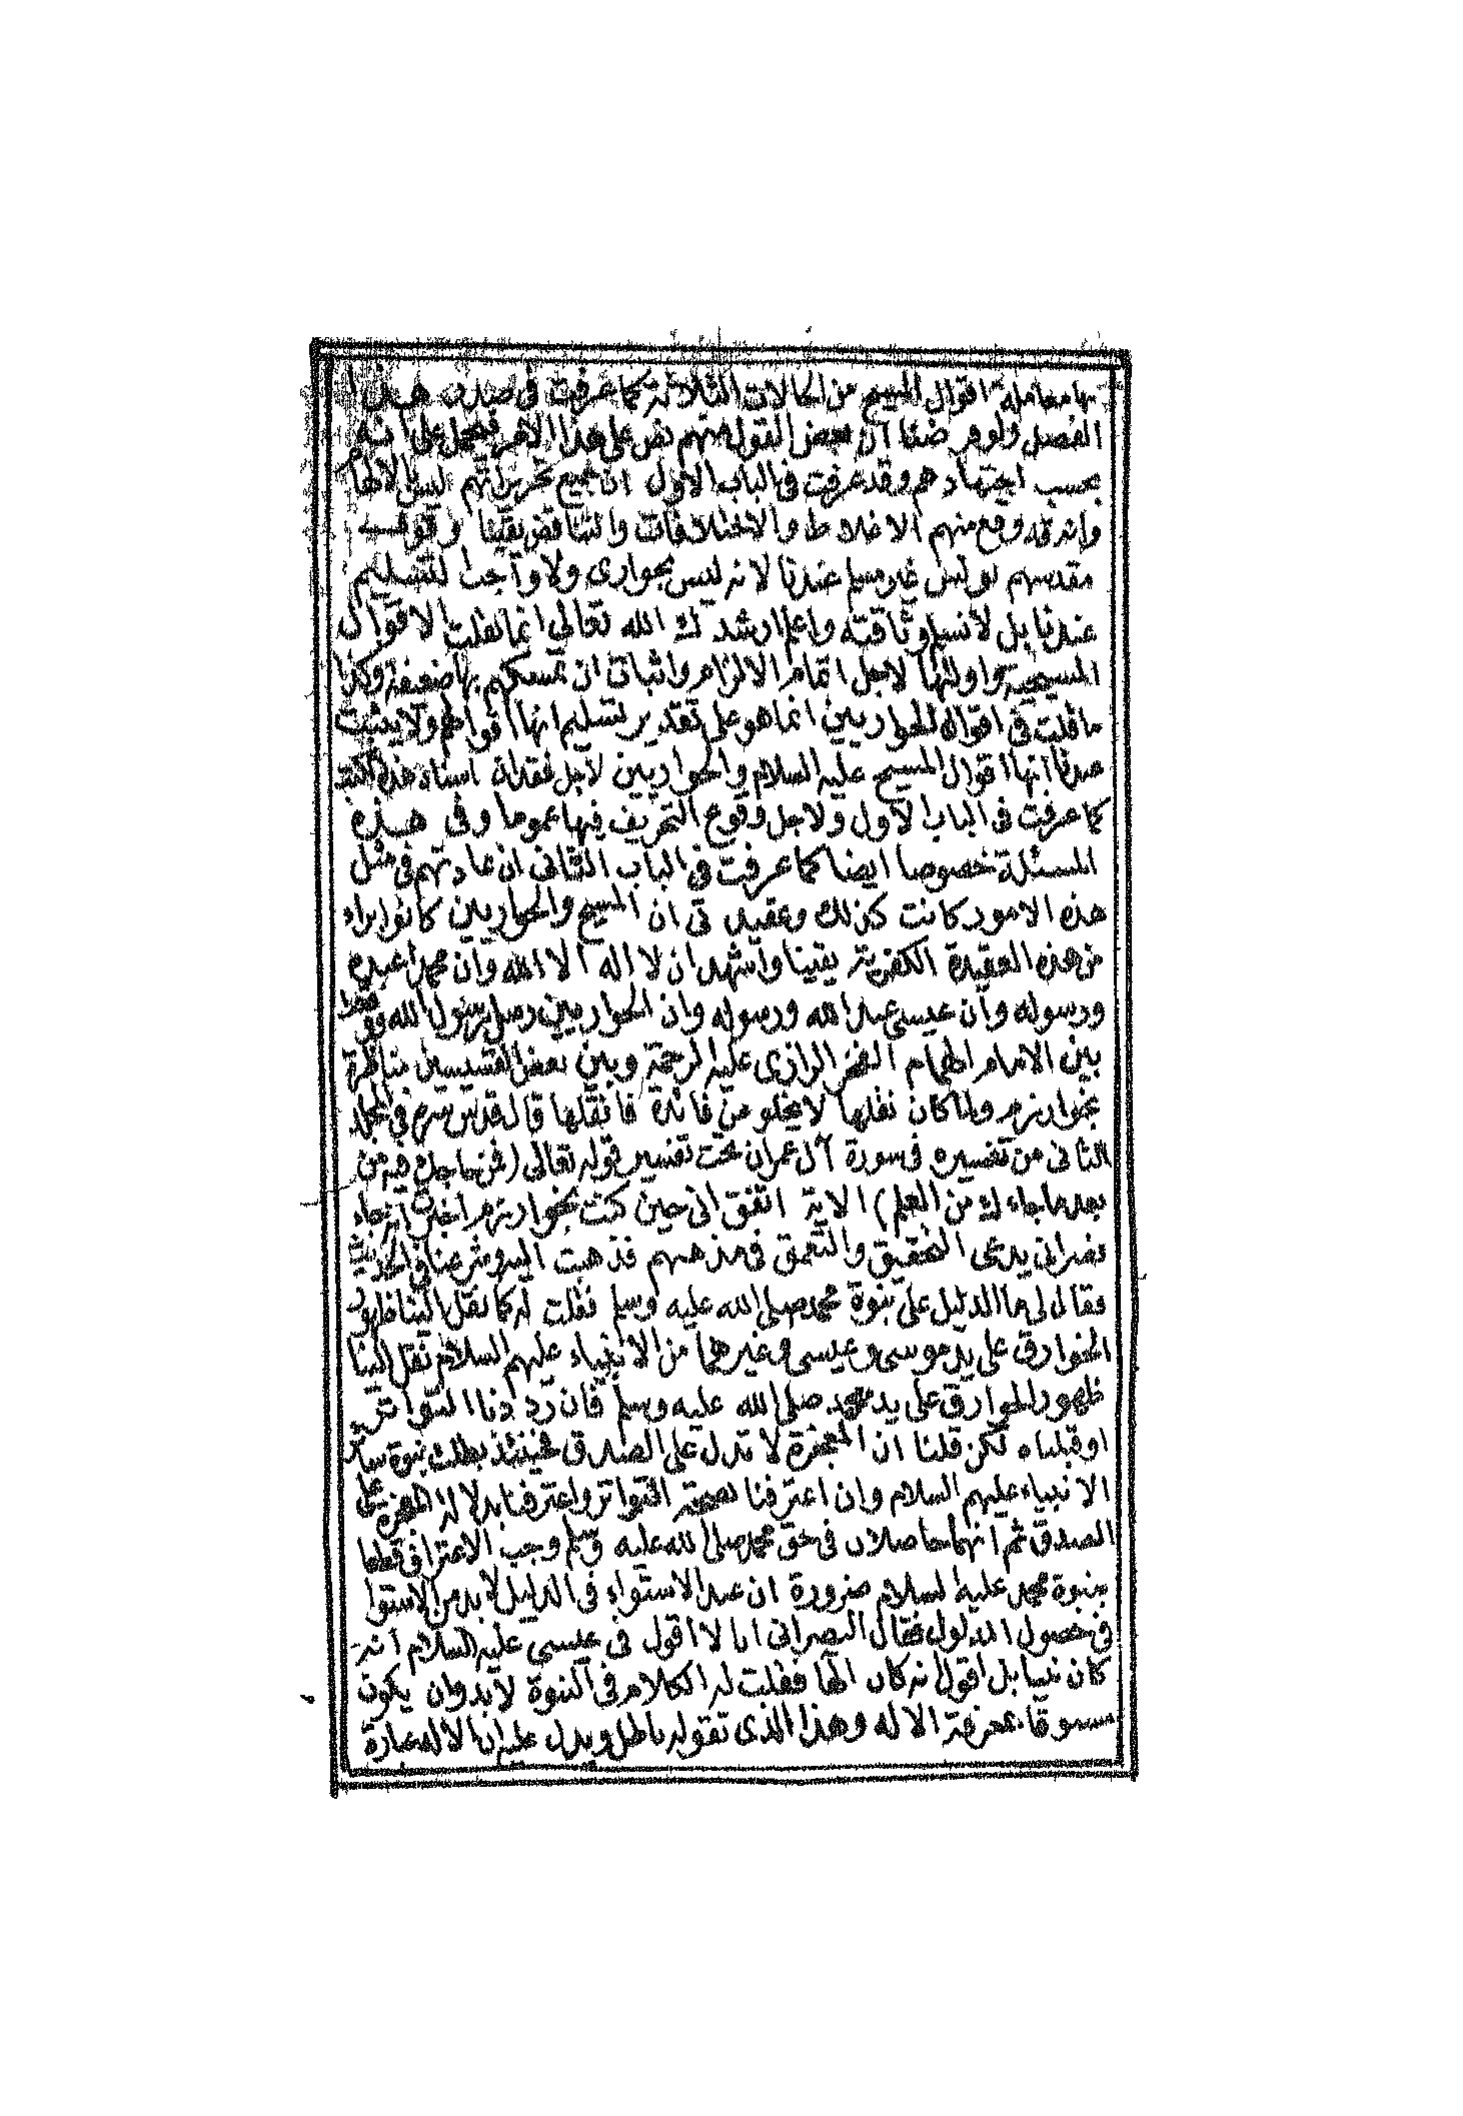 بها معاملة اقوال المسيح من الحالات الثلاثة كما عرفت فى صدر هذا
الفصل ولو فرضنا ان بعض القول منهم نص على هذا الامر فيحمل على انه
بحسب اجتهادهم وقد عرفت فى الباب الاول ان جميع تحريراتهم ليس بالالهام
وانه قد وقع منهم الاغلاط والاختلافات والتناقض يقينا وقول
مقدسهم بولس غير مسلم عندنا لانه ليس بحوارى ولا واجب التسليم
عندنا بل لا نسلم وثاقته واعلم ارشدك الله تعالى انما نقلت الاقوال
المسيحية واولتها لاجل اتمام الالزام واثبات ان تمسكهم بها ضعيفة وكذا
ما قلت فى اقوال الحواريين انما هو على تقدير تسليم انها اقوالهم ولا يثبت
عندنا انها اقوال المسيح عليه السلام والحواريين لاجل فقدان اسناد هذه الكتب
كما عرفت فى الباب الاول ولاجل وقوع التحريف فيها عموما وفى هذه
المسئلة خصوصا ايضا كما عرفت فى الباب الثانى ان عادتهم فى مثل
هذه الامور كانت كذلك وعقيدتى ان المسيح والحواريين كانوا براء
من هذه العقيدة الكفرية يقينا واشهد ان لا اله الا الله وان محمدا عبده
ورسوله وان عيسى عبد الله ورسوله وان الحواريين رسل رسول الله ووقع
بين الامام الهمام الفخر الرازى عليه الرحمة وبين بعض القسيسين مناظرة
بخوارزم ولما كان نقلها لا يخلو من فائدة فانقلها قال قدس سره فى المجلد
الثانى من تفسيره فى سورة آل عمران تحت تفسير قوله تعالى (فمن حاجك فيه من
بعد ما جاءك من العلم) الاية اتفق انى حين كنت بخوارزم اخبرت انه جاء
نصرانى يدعى التحقيق والتعمق فى مذهبهم فذهبت اليه وشرعنا فى الحديث
فقال لى ما الدليل على نبوة محمد صلى الله عليه وسلم فقلت له كما نقل الينا ظهور
الخوارق على يد موسى وعيسى وغيرهما من الانبياء عليهم السلام نقل الينا
ظهور الخوارق على يد محمد صلى الله عليه وسلم فان رددنا التواتر
او قبلناه لكن قلنا ان المعجزة لا تدل على الصدق فحينئذ بطلت نبوة سائر
الانبياء عليهم السلام وان اعترفنا بصحة التواتر واعترفنا بدلالة المعجزة على
الصدق ثم انهما حاصلان فى حق محمد صلى الله عليه وسلم وجب الاعتراف قطعا
بنبوة محمد عليه السلام ضرورة ان عند الاستواء فى الدليل لا بد من الاستوا
فى حصول المدلول فقال النصرانى انا لا اقول فى عيسى عليه السلام انه
كان نبيا بل اقول انه كان الها فقلت له الكلام فى النبوة لا بد وان يكون
مسبوقا بمعرفة الاله وهذا الذى تقوله باطل ويدل عليه ان الاله عبارة